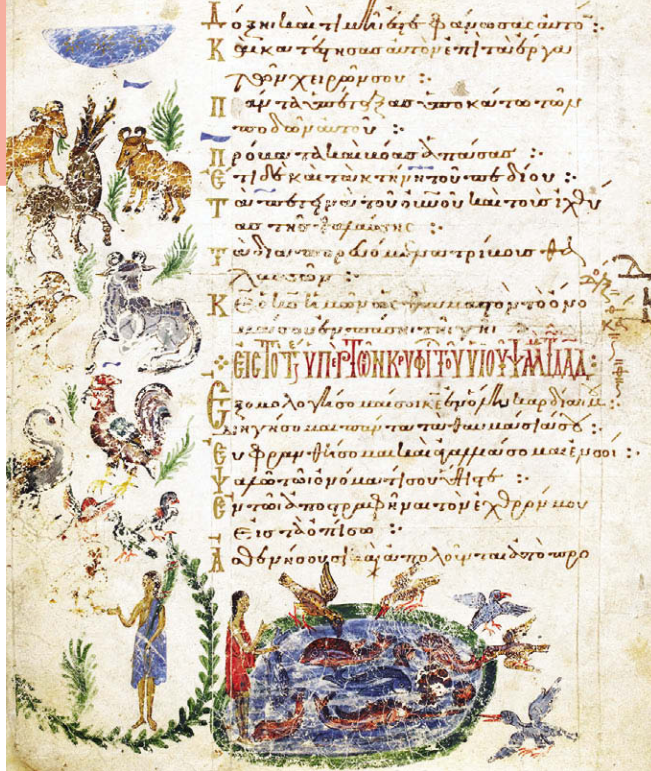 Δόξηι καὶ τιμῆι ἐστεφάνωσας αὐτὸ :·
Καὶ κατέστησας αὐτὸν ἐπὶ τὰ ἔργα
τῶν χειρῶν σου :·
Πάντα ὑπέταξας ὑποκάτω τῶν
ποδῶν αὐτοῦ :·
Πρόβατα καὶ βόας ἁπάσας :·
Ἔτι δὲ καὶ τὰ κτήνη τοῦ πεδίου :·
Τὰ πετεινὰ τοῦ οὐνοῦ καὶ τοὺς ἰχθύ
ας τῆς θαλάσσης :·
Τὰ διαπορευόμενα τρίβους θα
λασσῶν :·
Κε ὁ κς ἡμῶν ὡς θαυμαστὸν τὸ ὄνο
μά σου ἐν πάσηι τῆι γῆι
ΕΙΣ ΤΟ Τ ΥΠΕΡ ΤΩΝ ΚΡΥΦΙ ΤΟΥ ΥΙΟΥ ΨΑΛ ΤΔΑΔ :
Ἐξομολογήσομαί σοι κε ἐν ὅληι καρδίαι μ :·
διηγήσομαι πάντα τὰ θαυμάσιά σου :·
Εὐφρανθήσομαι καὶ ἀγαλλιάσομαι ἐν σοί :·
Ψαλῶ τῶι ὀνόματί σου ὕψιστε :·
Ἐν τῶι ἀποστραφῆναι τὸν ἐχθρόν μου
εἰς τὰ ὀπίσω :·
Ἀσθενήσουσι καὶ ἀπολοῦνται ἀπὸ προ